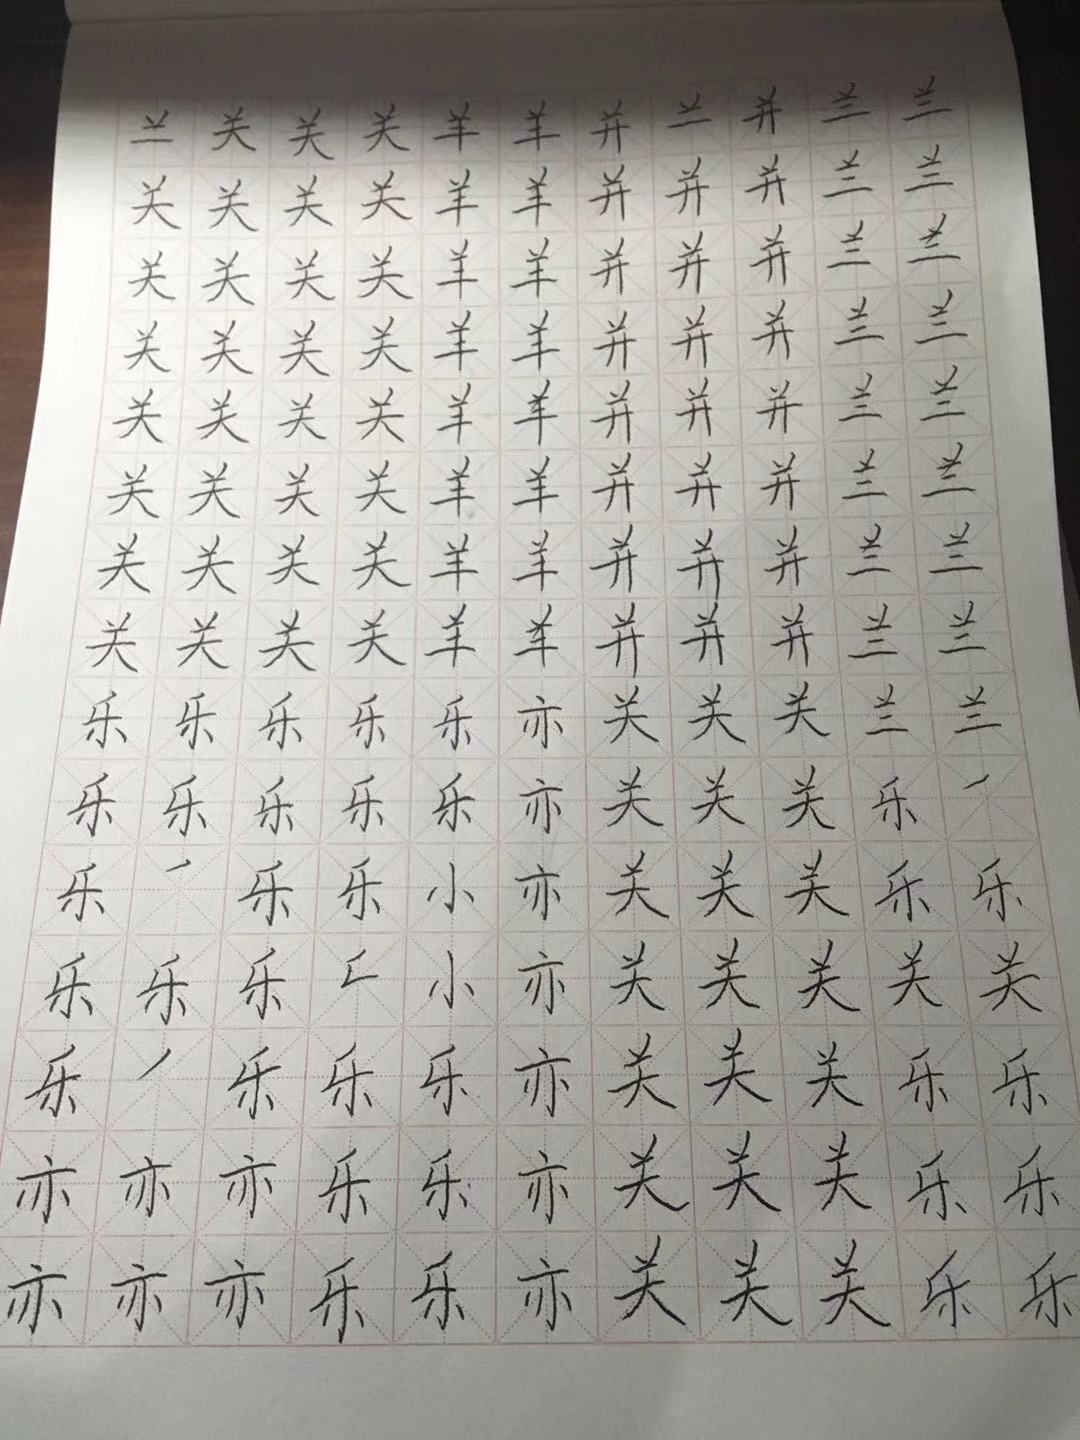 兰关关关羊羊并兰并兰兰
关关关关羊羊并并并兰兰
关关关关羊羊并并并兰兰
关关关关羊羊并并并兰兰
关关关关羊羊并并并兰兰
关关关关羊羊并并并兰兰
关关关关羊羊并并并兰兰
关关关关羊羊并并并兰兰
乐乐乐乐乐亦关关关兰兰
乐乐乐乐乐亦关关关乐
乐乐乐小亦关关关乐乐
乐乐乐小亦关关关关关
乐乐乐乐亦关关关乐乐
亦亦亦乐乐亦关关关乐乐
亦亦亦乐乐亦关关关乐乐